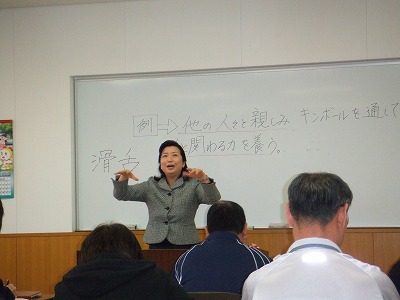 例→他の人々と親しみ キンボールを通して
と関わる力を養う。
滑舌